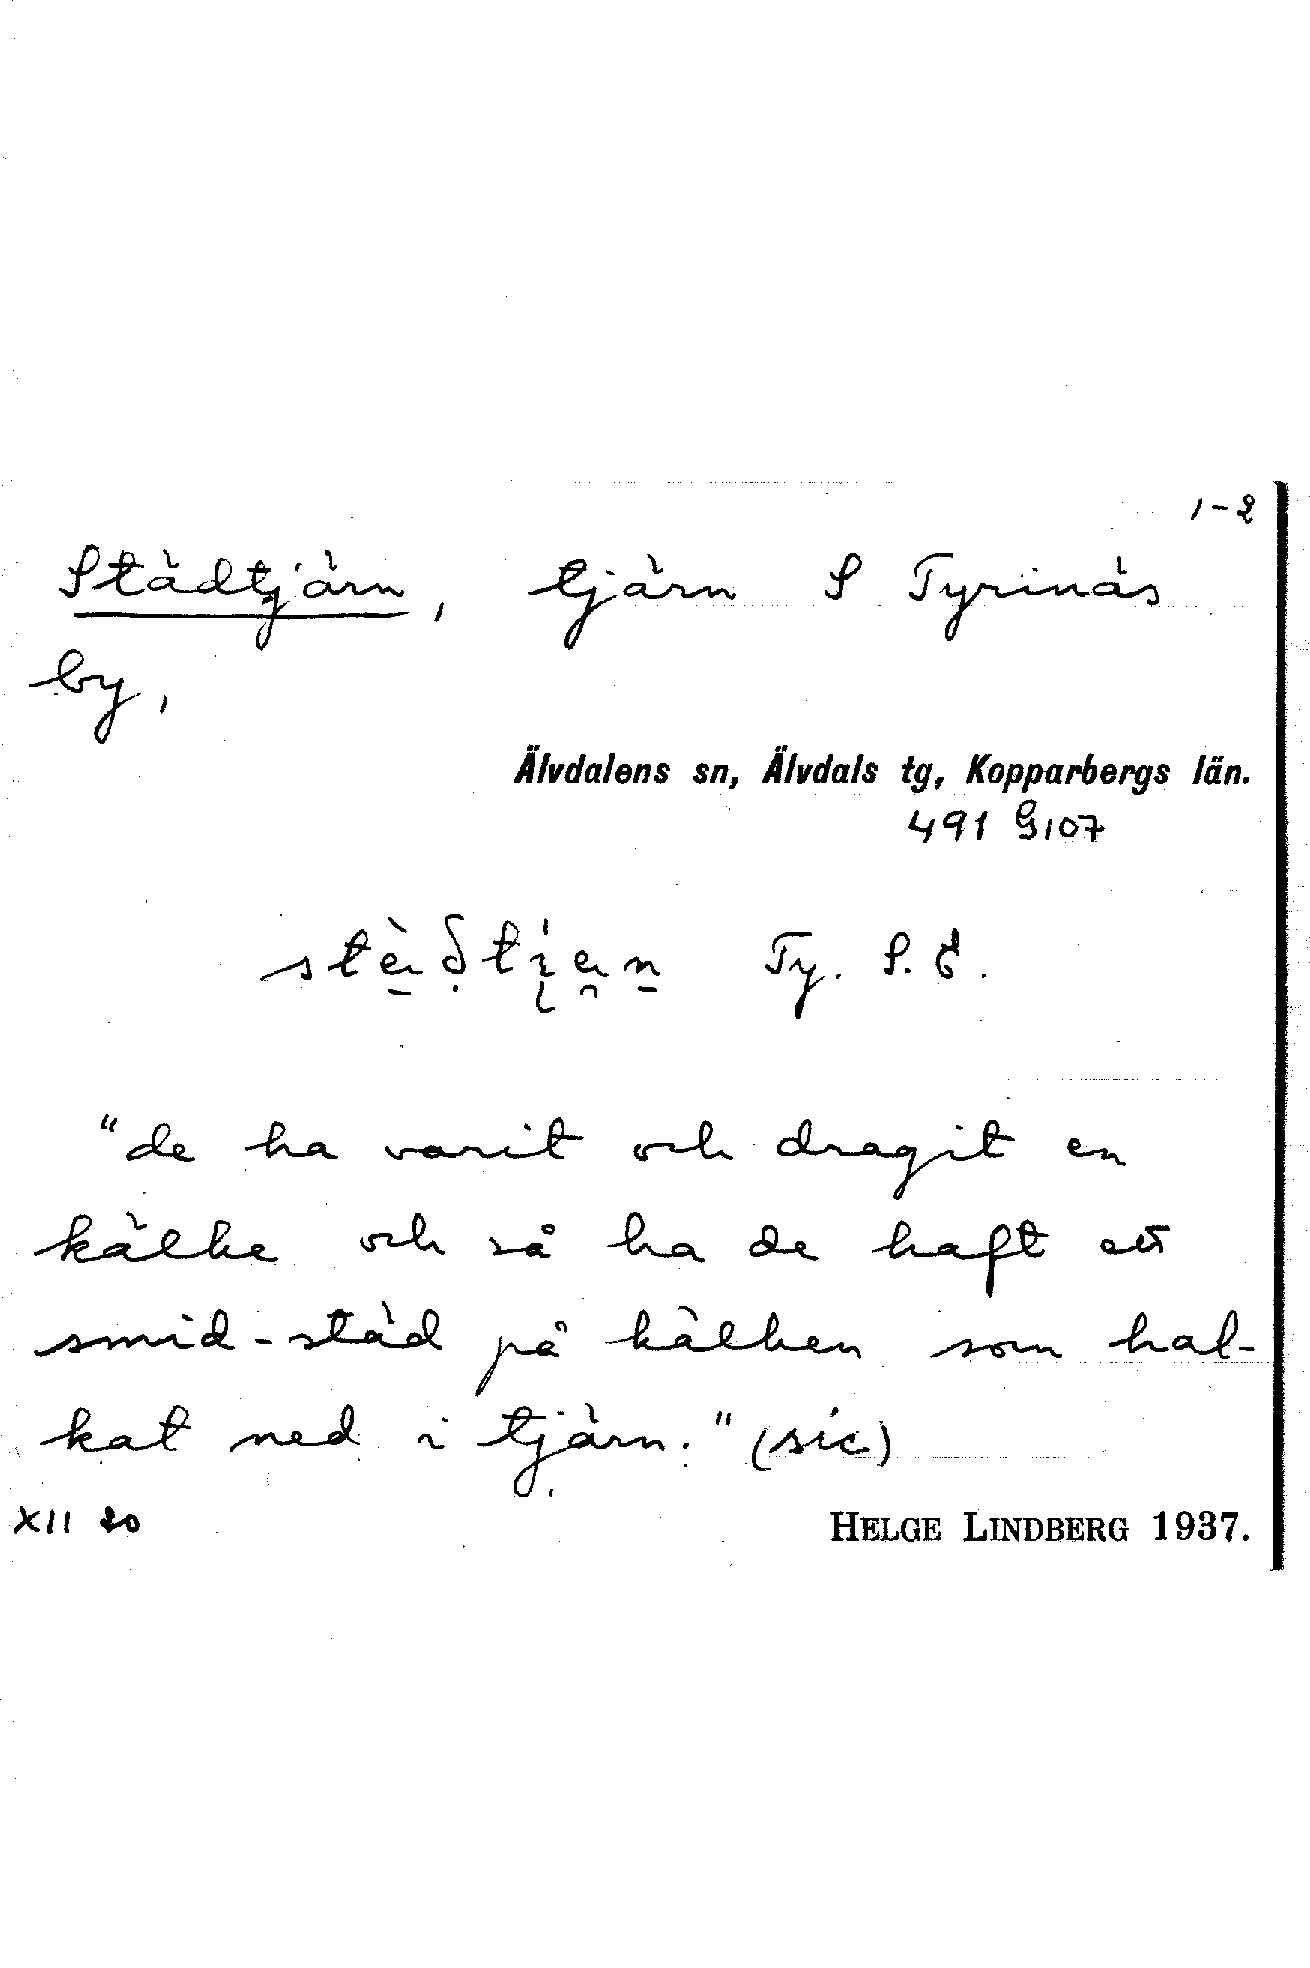 1-2
Städtjärn, tjärn S Tyrinäs
by,
Älvdalens sn, Älvdals tg, Kopparbergs län.
491 G107
Ty. S. E.
"de ha varit och dragit en
kälke och så ha de haft ett
smid-städ på kälken som hal-
kat ned i tjärn." (sic)
XII 20
HELGE LINDBERG 1937.